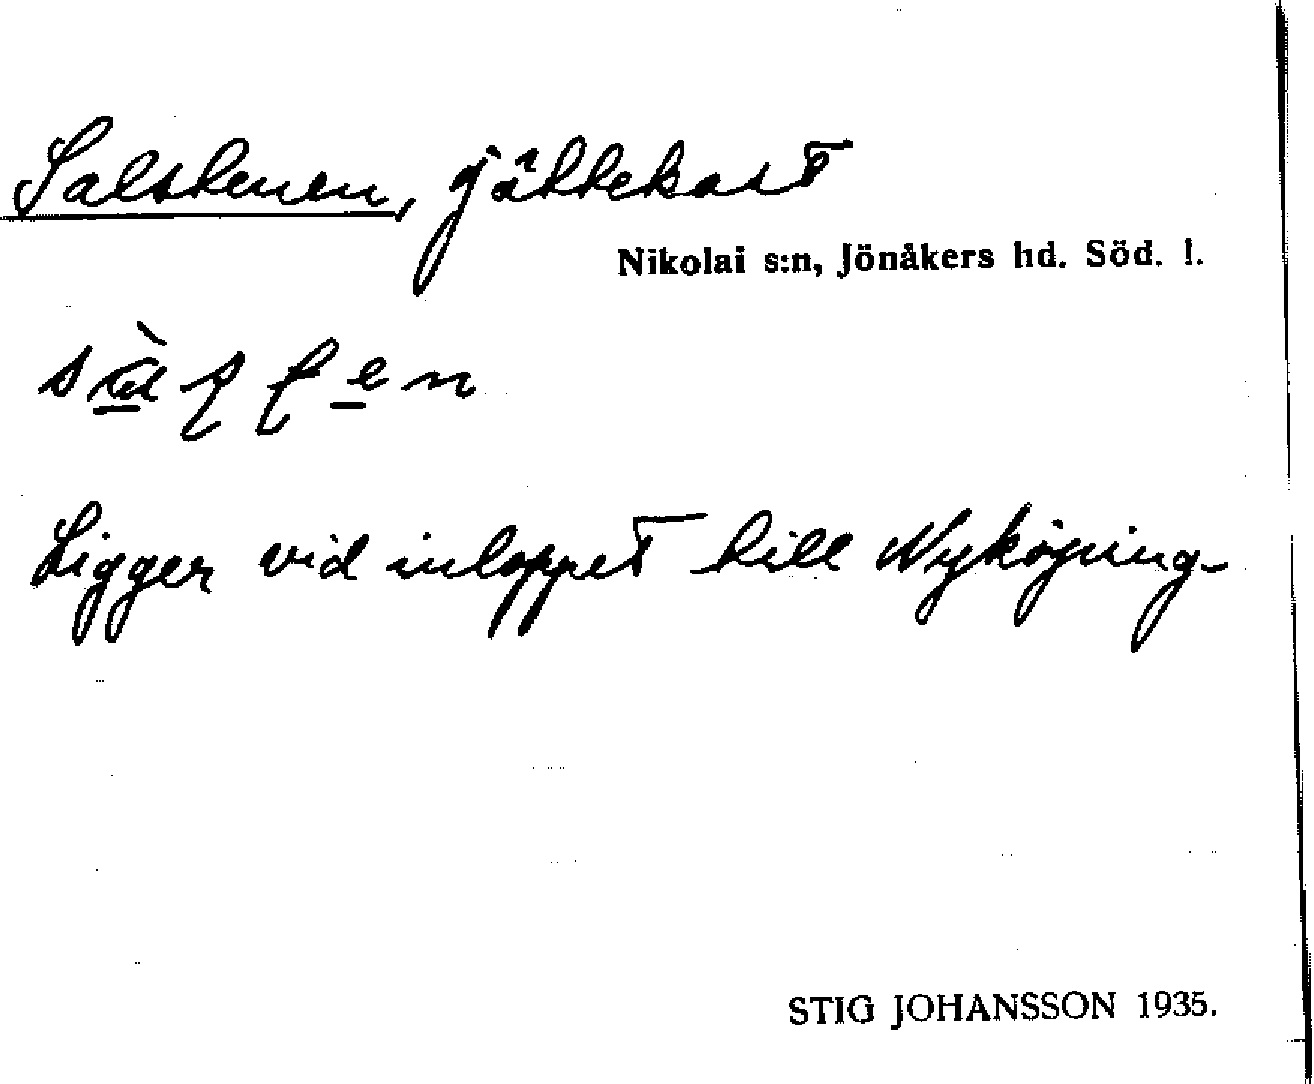 Salstenen, jättekast
Nikolai s:n, Jönåkers hd. Söd. l.
Ligger vid inloppet till Nyköping-
STIG JOHANSSON 1935.